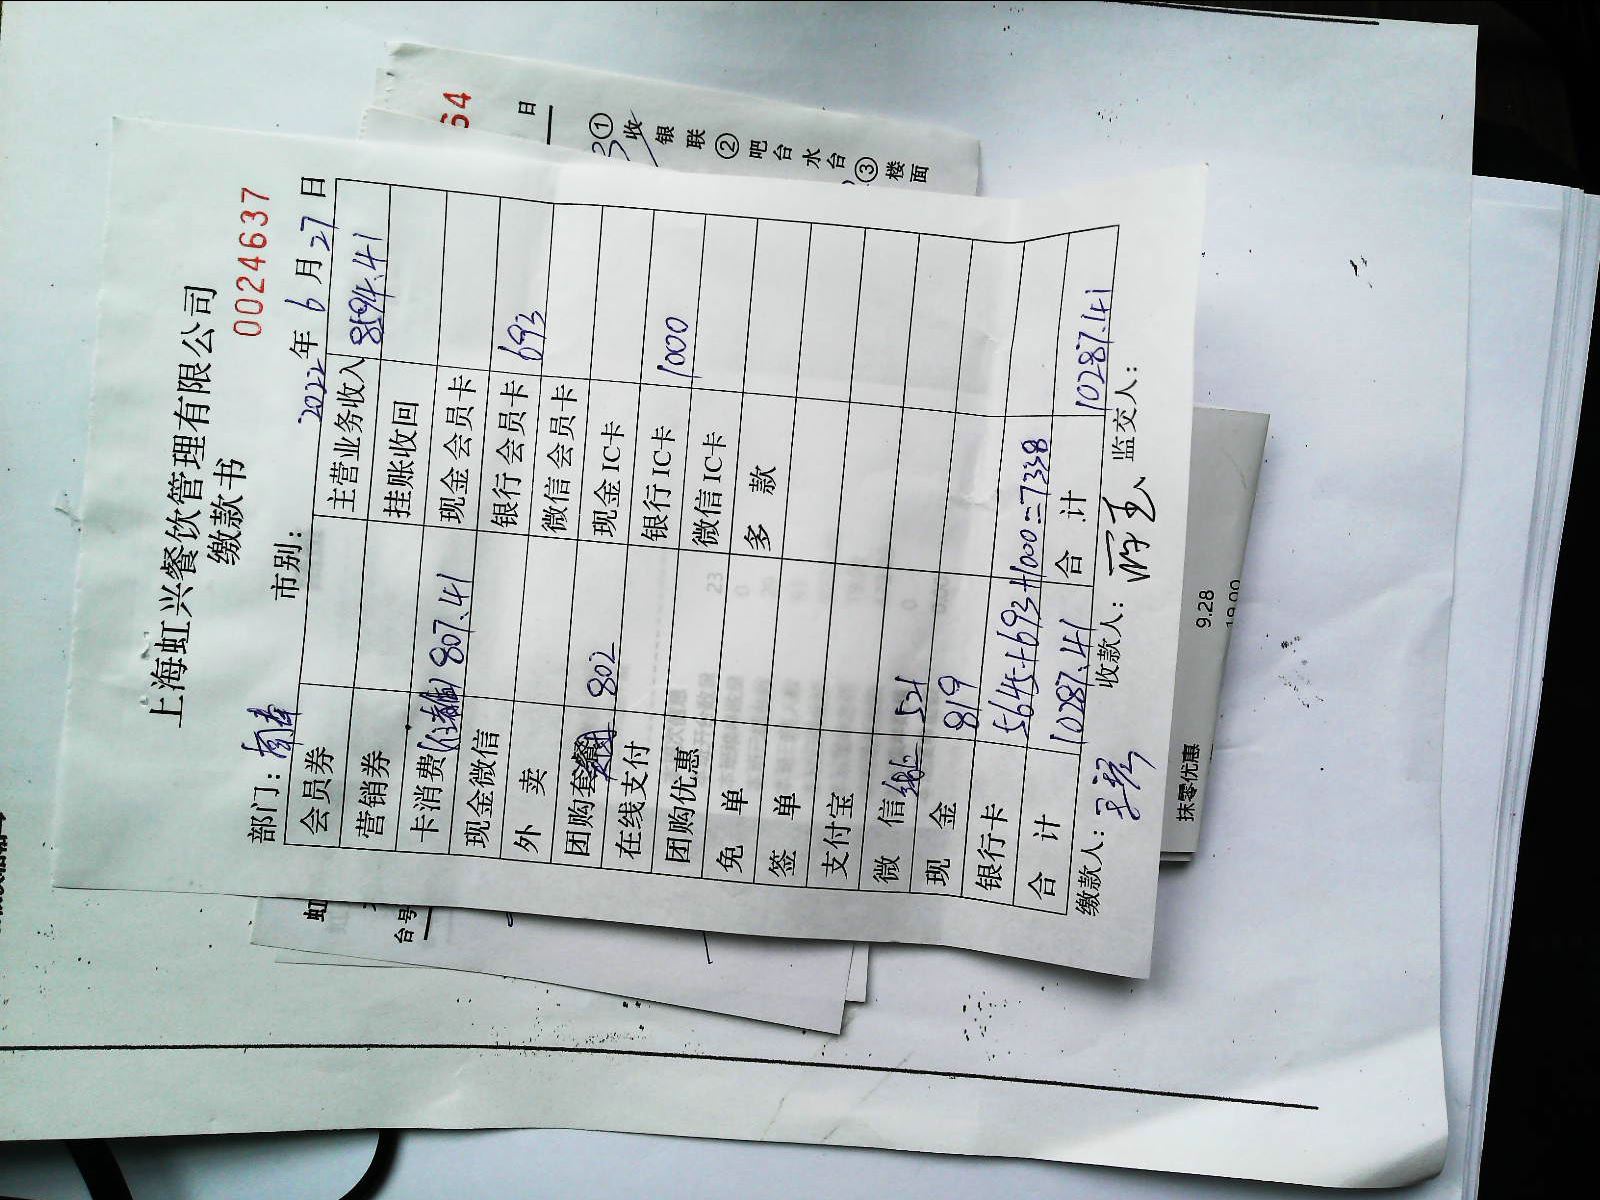 上海虹兴餐饮管理有限公司
缴款书
0024637
部门: 市别: 2022年6月27日
会员券 主营业务收入 8594.41
营销券 挂账收回
卡消费 807.41 现金会员卡
现金微信 银行会员卡 693
外卖 微信会员卡
团购套餐 现金IC卡
在线支付 802 银行IC卡 1000
团购优惠 微信IC卡
免单 多款
签单
支付宝
微信 521
现金 819
银行卡 5645+693+1000=7338
合计 10287.41 合计 10287.41
缴款人: 收款人: 监交人:
64
日
①收银联②吧台水台③楼面
虹
台号
9.28
19.00
抹零优惠